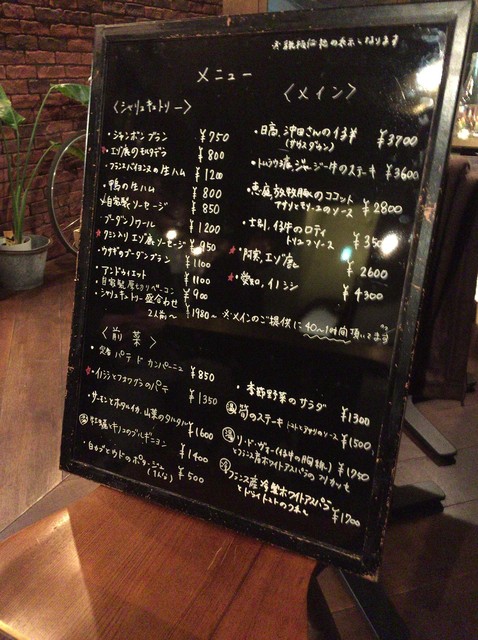 メニュー
〈シャリュキュトリー〉
・ジャンボンブラン ¥750
★エゾ鹿のモルタデラ ¥800
・フランスバイヨンヌの生ハム ¥1200
・鴨の生ハム ¥800
・自家製ソーセージ ¥850
・ブーダンノワール ¥1200
★クミン入りエゾ鹿ソーセージ ¥950
・ウサギのブーダンブラン ¥1100
・アンドゥイエット ¥1100
・自家製厚切りベーコン ¥900
・シャリュキュトリー盛合わせ
2人前〜 ¥1980〜
〈前菜〉
パテ ド カンパーニュ ¥850
★イノシシとフォワグラのパテ ¥1350
・サーモンとホタルイカ、山菜のタルタル ¥1600
牡蠣とキノコのブルギニヨン ¥1400
・白カブとウドのポタージュ ¥500
〈メイン〉
・日高、沖田さんの仔羊 ¥3700
ジャージー牛のステーキ ¥3600
・恵庭放牧豚のココット
アサリとモリーユのソース ¥2800
・士別、仔牛のロティ
トリュフソース
★阿寒、エゾ鹿 ¥2600
★愛知、イノシシ ¥4300
※メインのご提供に40〜1時間頂いてます
・季節野菜のサラダ ¥1300
筍のステーキ ¥1500
リ・ド・ヴォー(仔牛の胸腺)
とフランス産ホワイトアスパラのフリカッセ ¥1750
フランス産冷製ホワイトアスパラ
とドライトマトのソース ¥1700